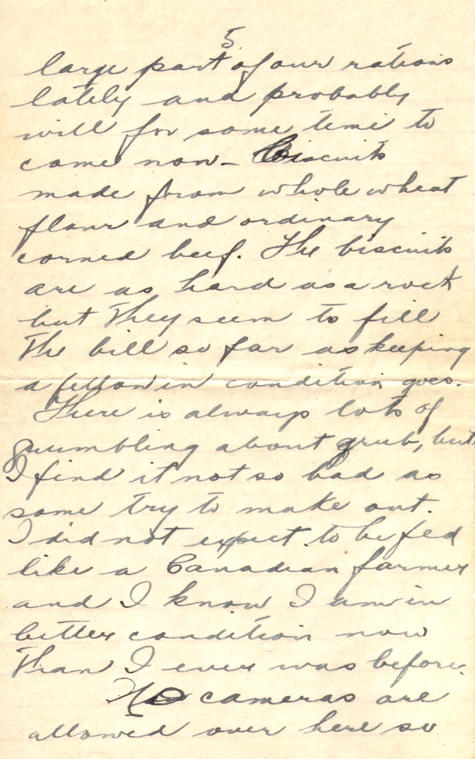 5
large part of our rations
lately and probably
will for some time to
come now - Biscuits
made from whole wheat
flour and ordinary
corned beef. The biscuits
are as hard as a rock
but they seem to fill
the bill so far as keeping
a fellow in condition goes.
There is always lots of
grumbling about grub, but
I find it not so bad as
some try to make out.
I did not expect to be fed
like a Canadian farmer
and I know I am in
better condition now
than I ever was before.
No cameras are
allowed over here so